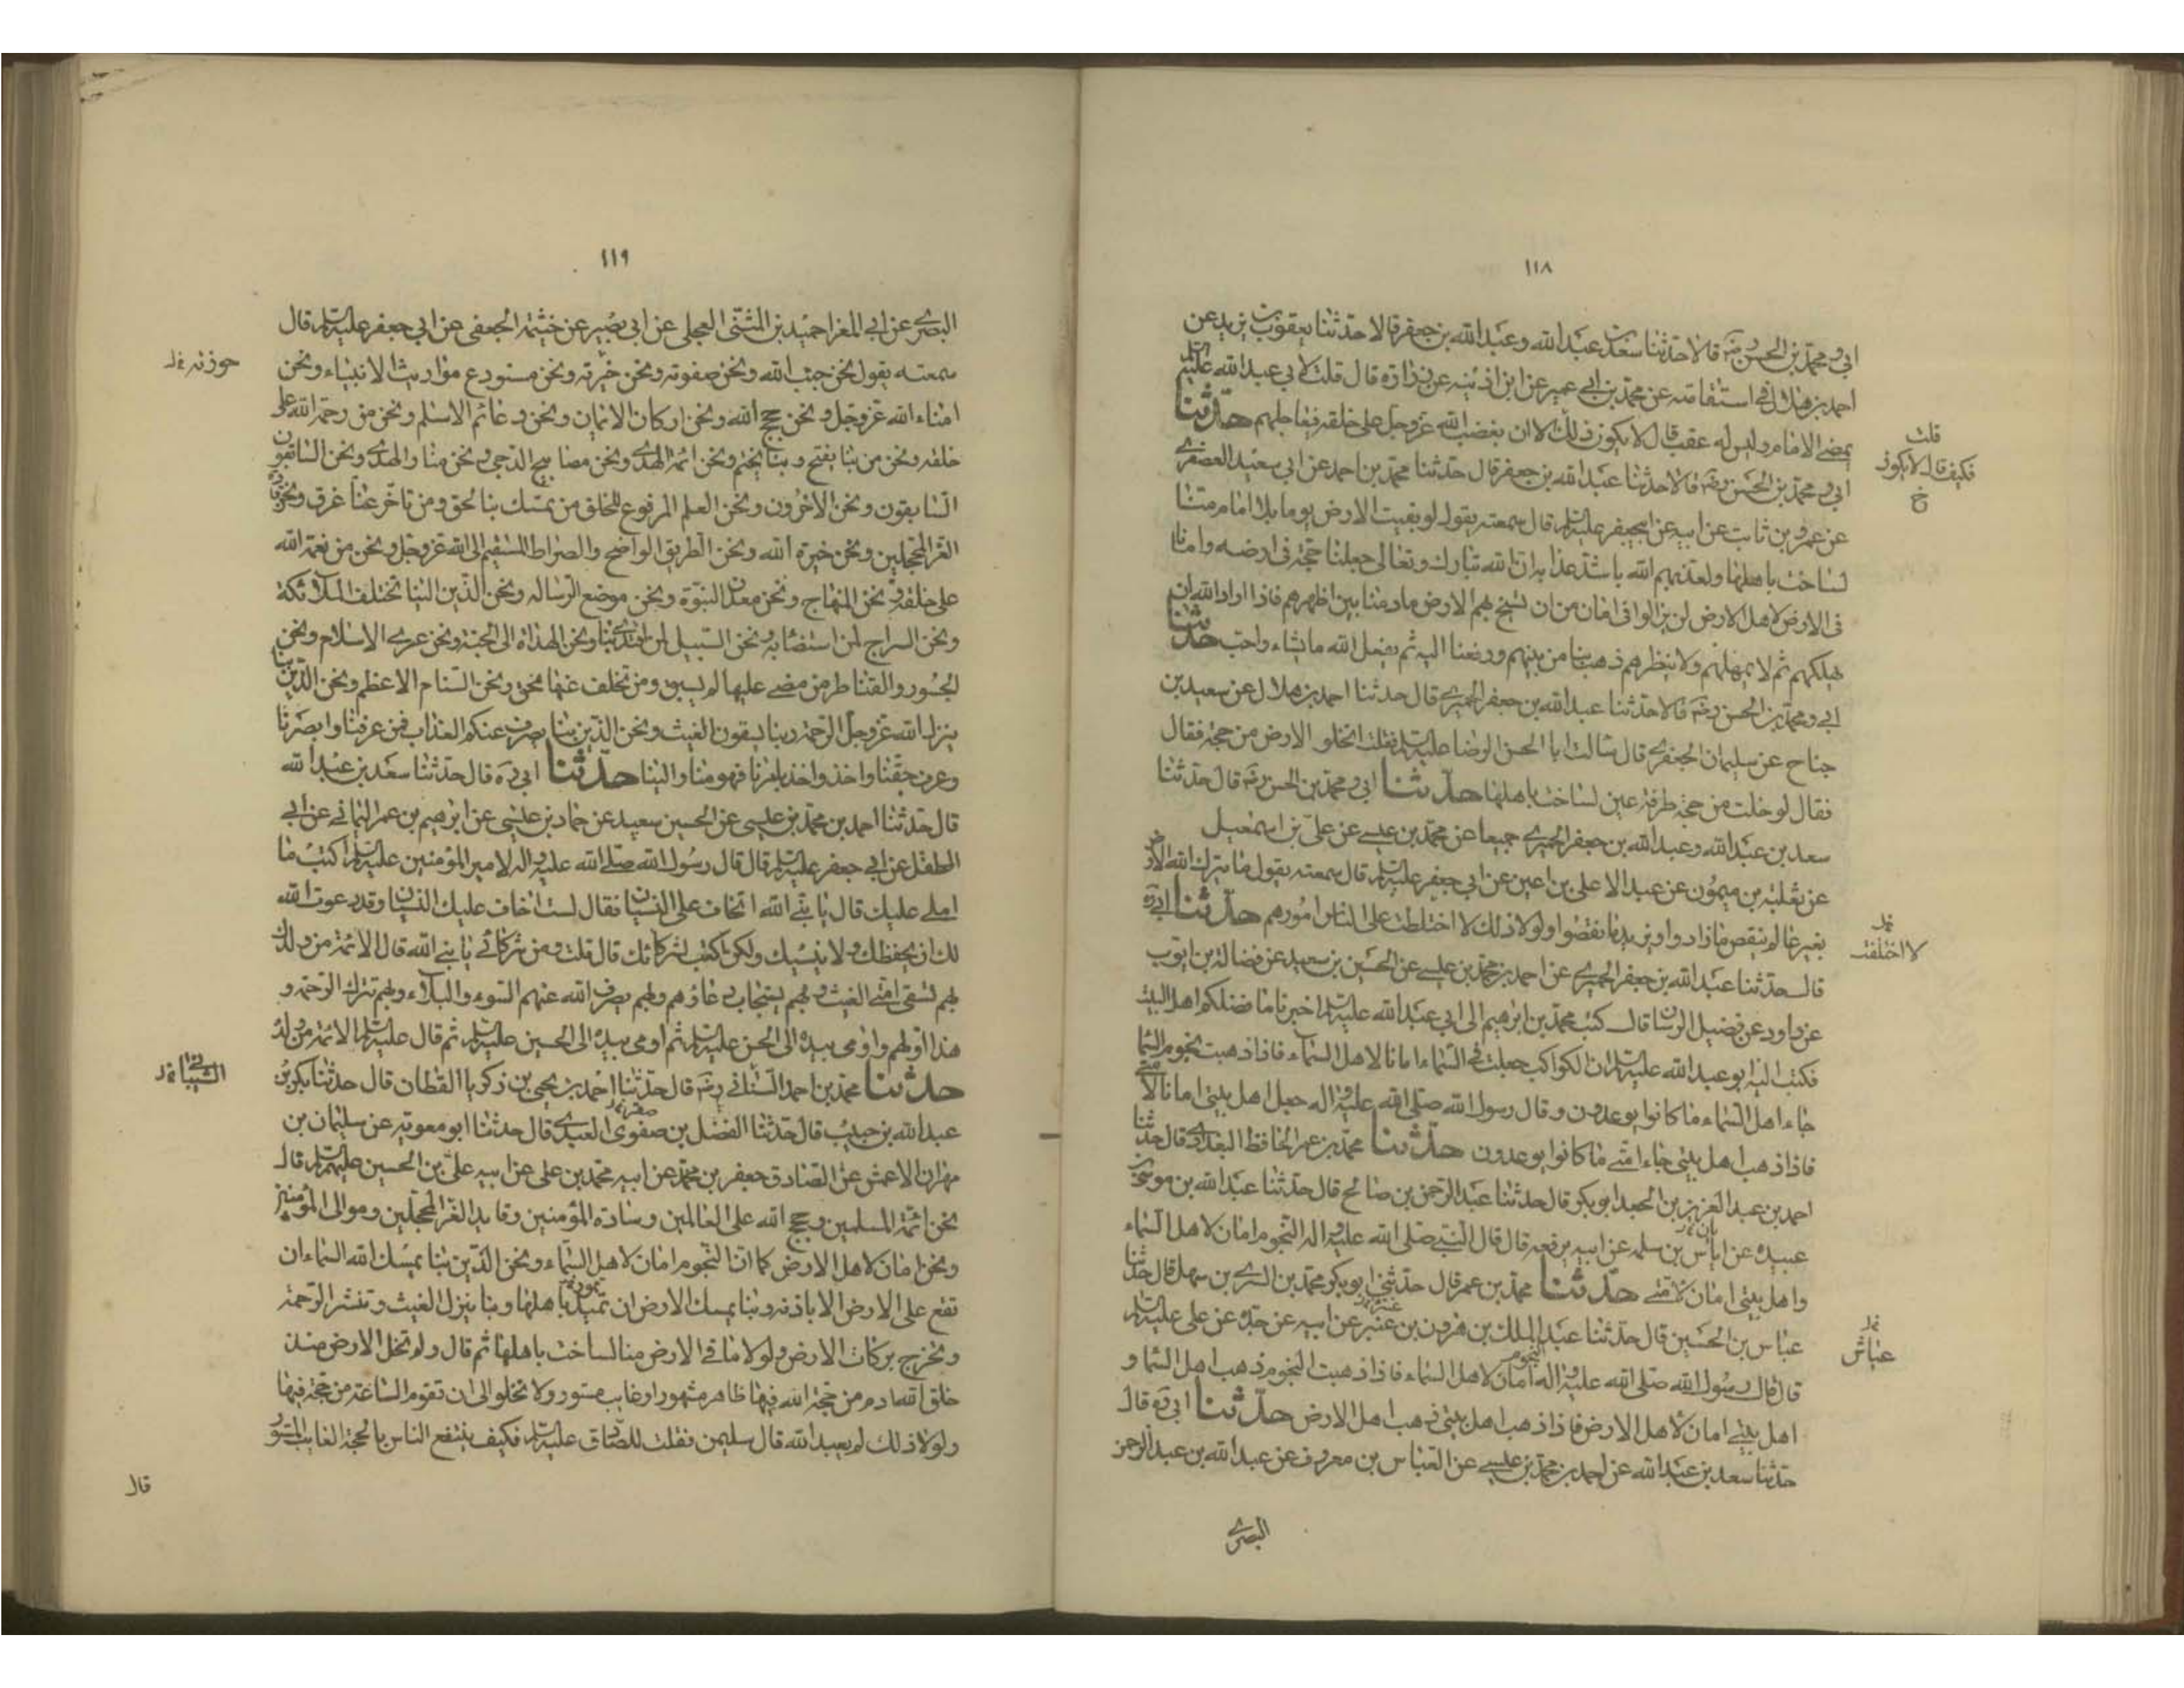 ١١٨
ابي ومحمد بن الحسن رضه قالا حدثنا سعد بن عبد الله وعبد الله بن جعفر قالا حدثنا يعقوب بن يزيد عن
احمد بن هلال في استقامته عن محمد بن ابي عمير عن ابن اذينه عن زرارة قال قلت لابي عبد الله عليه السلم
يمضي الامام وليس له عقب قال لا يكون ذلك الا ان يغضب الله عز وجل على خلقه فيعاجلهم حدثنا
ابي و محمد بن الحسن رضه قالا حدثنا عبد الله بن جعفر قال حدثنا محمد بن احمد عن ابي سعيد العصفري
عن عمرو بن ثابت عن ابيه عن ابيجعفر عليه السلم قال سمعته يقول لو بقيت الارض يوما بلا امام منا
لساخت باهلها ولعذبهم الله باشد عذابه ان الله تبارك وتعالى جعلنا حجة في ارضه وامانا
في الارض لاهل الارض لن يزالوا في امان من ان تسيخ بهم الارض ما دمنا بين اظهرهم فاذا اراد الله ان
يهلكهم ثم لا يمهلهم ولا ينظرهم ذهب بنا من بينهم ورفعنا اليه ثم يفعل الله ما يشاء واحب حدثنا
ابي ومحمد بن الحسن رضه قالا حدثنا عبد الله بن جعفر الحميري قال حدثنا احمد بن هلال عن سعيد بن
جناح عن سليمان الجعفري قال سالت ابا الحسن الرضا عليه السلم فقلت اتخلو الارض من حجة فقال
فقال لو خلت من حجة طرفة عين لساخت باهلها حدثنا ابي و محمد بن الحسن رضه قال حدثنا
سعد بن عبد الله وعبد الله بن جعفر الحميري جميعا عن محمد بن عيسى عن علي بن اسمعيل
عن ثعلبة بن ميمون عن عبد الاعلى بن اعين عن ابي جعفر عليه السلم قال سمعته يقول ما يترك الله الارض
بغير عالم ينقص ما زادوا ويزيد ما نقصوا ولولا ذلك لا اختلطت على الناس امورهم حدثنا ابي ره
قال حدثنا عبد الله بن جعفر الحميري عن احمد بن محمد بن عيسى عن الحسين بن سعيد عن فضالة بن ايوب
عن داود عن فضيل الرسان قال كتب محمد بن ابرهيم الى ابي عبد الله عليه السلم اخبرنا ما فضلكم اهل البيت
فكتب اليه ابو عبد الله عليه السلم ان الكواكب جعلت في السماء امانا لاهل السماء فاذا ذهبت نجوم السما
جاء اهل السماء ما كانوا يوعدون وقال رسول الله صلى الله عليه واله جعل اهل بيتي امانا لامتي
فاذا ذهب اهل بيتي جاء امتي ما كانوا يوعدون حدثنا محمد بن عمر الحافظ البغدادي قال حدثنا
احمد بن عبد العزيز بن الجعد ابو بكر قال حدثنا عبد الرحمن بن صالح قال حدثنا عبد الله بن موسى عن
عبيده عن اياس بن سلمه عن ابيه يرفعه قال قال النبي صلى الله عليه واله النجوم امان لاهل السماء
واهل بيتي امان لامتي حدثنا محمد بن عمر قال حدثني ابو بكر محمد بن السري بن سهل قال حدثنا
عباس بن الحسين قال حدثنا عبد الملك بن هرون بن عنبر عن ابيه عن جده عن علي عليه السلم
قال قال رسول الله صلى الله عليه واله النجوم امان لاهل السماء فاذا ذهبت النجوم ذهب اهل السما و
اهل بيتي امان لاهل الارض فاذا ذهب اهل بيتي ذهب اهل الارض حدثنا ابي ره قال
حدثنا سعد بن عبد الله عن احمد بن محمد بن عيسى عن العباس بن معروف عن عبد الله بن عبد الرحمن
البصري
قلت
فكيف قال لا يكون
خ
لا اختلفت
عباش
١١٩
البصري عن ابي المغرا حميد بن المثنى العجلي عن ابي بصير عن خيثمة الجعفي عن ابي جعفر عليه السلم قال
سمعته يقول نحن جنب الله ونحن صفوته ونحن خيرته ونحن مستودع مواريث الانبياء ونحن
امناء الله عز وجل ونحن حجج الله ونحن اركان الايمان ونحن دعائم الاسلم ونحن من رحمة الله على
خلقه ونحن من بنا يفتح وبنا يختم ونحن ائمة الهدى ونحن مصابيح الدجى ونحن منار الهدى ونحن السابقون
السابقون ونحن الاخرون ونحن العلم المرفوع للخلق من تمسك بنا لحق ومن تاخر عنا غرق ونحن قادة
الغر المحجلين ونحن خيرة الله ونحن الطريق الواضح والصراط المستقيم الى الله عز وجل ونحن من نعمة الله
على خلقه ونحن المنهاج ونحن معدن النبوة ونحن موضع الرساله ونحن الذين الينا تختلف الملائكة
ونحن السراج لمن استضاء به ونحن السبيل لمن اقتدى بنا ونحن الهداة الى الجنة ونحن عرى الاسلام ونحن
الجسور والقناطر من مضى عليها لم يسبق ومن تخلف عنها محق ونحن السنام الاعظم ونحن الذين بنا
ينزل الله عز وجل الرحمة وبنا يسقون الغيث ونحن الذين بنا يصرف عنكم العذاب فمن عرفنا وابصرنا
وعرف حقنا واخذ واخذ بامرنا فهو منا والينا حدثنا ابي ره قال حدثنا سعد بن عبد الله
قال حدثنا احمد بن محمد بن عيسى عن الحسين سعيد عن حماد بن عيسى عن ابرهيم بن عمر اليماني عن ابي
الطفل عن ابي جعفر عليه السلم قال قال رسول الله صلى الله عليه واله لامير المؤمنين عليه السلم اكتب ما
املي عليك قال يا نبي الله اتخاف علي النسيان فقال لست اخاف عليك النسيان وقد دعوت الله
لك ان يحفظك ولا ينسيك ولكن اكتب لشركائك قال قلت ومن شركائي يا نبي الله قال الائمة من ولدك
بهم تسقى امتي الغيث وبهم يستجاب دعاؤهم وبهم يصرف الله عنهم السوء والبلاء وبهم تنزل الرحمة و
هذا اولهم واومى بيده الى الحسن عليه السلم ثم اومى بيده الى الحسين عليه السلم ثم قال عليه السلم الائمة من ولده
حدثنا محمد بن احمد السناني رضه قال حدثنا احمد بن يحيى بن زكريا القطان قال حدثنا بكر بن
عبد الله بن حبيب قال حدثنا الفضل بن صفوى العبدي قال حدثنا ابو معوية عن سليمان بن
مهران الاعمش عن الصادق جعفر بن محمد عن ابيه محمد بن علي عن ابيه علي بن الحسين عليهم السلم قال
نحن ائمة المسلمين وحجج الله على العالمين وسادة المؤمنين وقايد الغر المحجلين وموالى المؤمنين
ونحن امان لاهل الارض كما ان النجوم امان لاهل السماء ونحن الذين بنا يمسك الله السماء ان
تقع على الارض الا باذنه وبنا يمسك الارض ان تميد باهلها وبنا ينزل الغيث وتنشر الرحمة
وتخرج بركات الارض ولولا ما في الارض منا لساخت باهلها ثم قال ولم تخل الارض منذ
خلق الله ادم من حجة الله فيها ظاهر مشهور او غايب مستور ولا تخلو الى ان تقوم الساعة من حجة فيها
ولولا ذلك لم يعبد الله قال سليمن فقلت للصادق عليه السلم فكيف ينتفع الناس بالحجة الغايب المستور
قال
حوزته
الشيباني